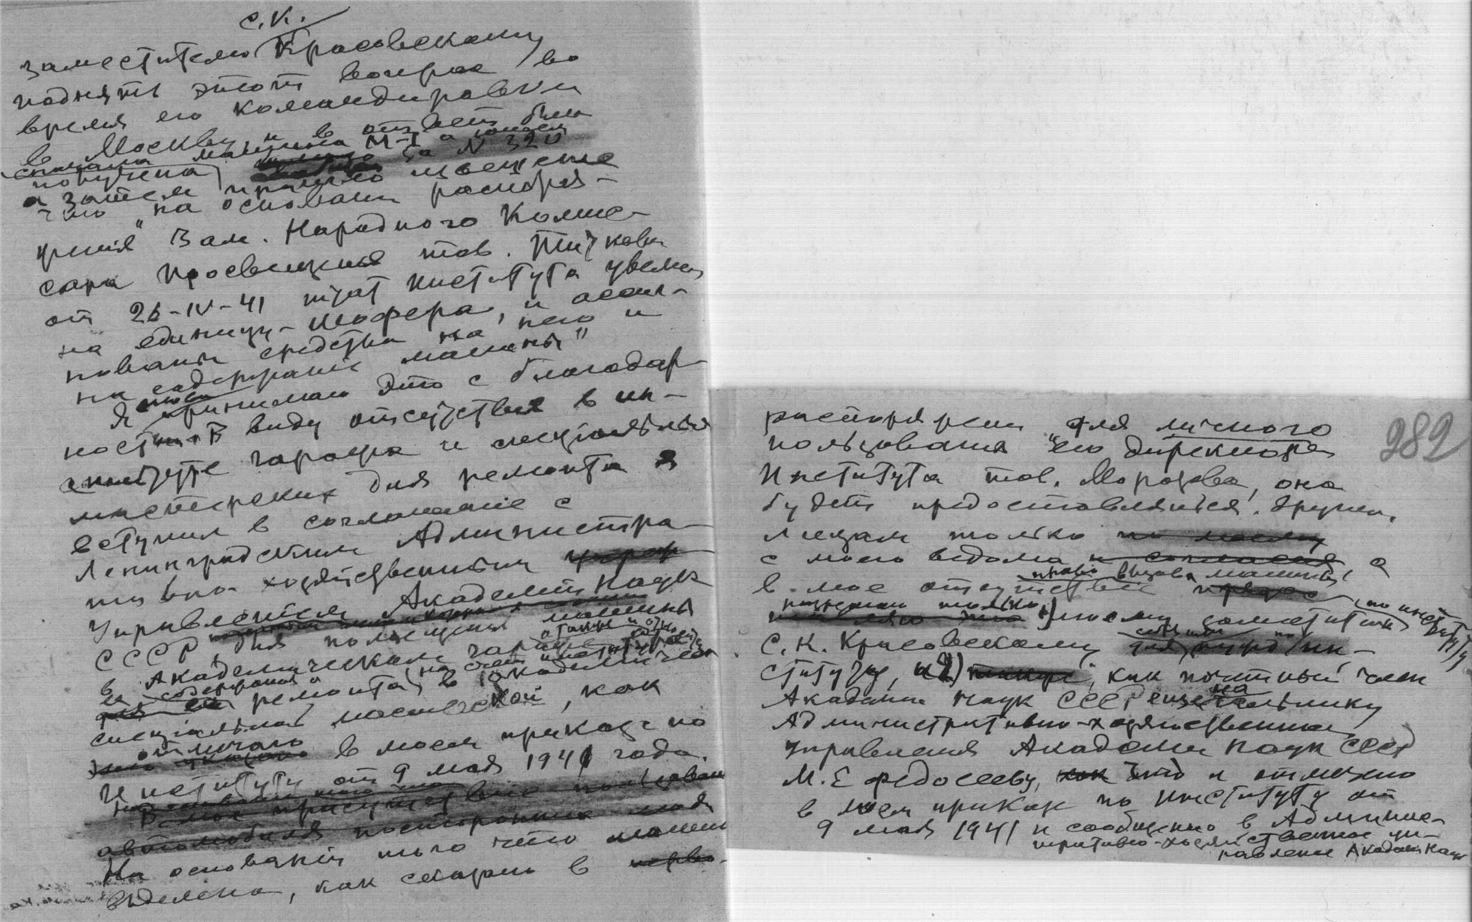 С.К.
заместителю Красовскому
поднять этот вопрос во
время его командировки
в Москву и в ответ была
сначала машина М-1 а
получена за N
а затем пришло извещение
что "на основании распоря-
жения Зам. Народного Комис-
сара Просвещения тов.
от 26-IV-41 штат Института увелич
на единицу - шофера, и ассиг-
нованы средства на него и
на содержание машины"
Я принимаю это с благодар-
ностью В виду отсутствия в ин-
ституте гаража и специальных
мастерских для ремонта я
вступил в соглашение с
Ленинградским Администра-
тивно хозяйственным
Управлением Академии Наук
СССР для помещения машины
в Академическом гараже
содержания и
ремонта в академической
специальной мастерской, как
отмечено в моем приказе по
Институту от 9 мая 1941 года.
В мое присутствие
автомобиля посторонним
На основании того что машина
выделена, как сказано в
распоряжении для личного
пользования "его директора
Института тов. Морозова, она
будет предоставляться другим
лицам только по моему
с моего ведома и согласия а
в мое отсутствие право вызова машины
только 1) моему заместителю по институту
С.К. Красовскому
ституту, и 2) как почетный член
Академии Наук СССР начальнику
Административно-хозяйственного
управления Академии Наук СССР
М.Е. Федосееву, как это и отмечено
в моем приказе по Институту от
9 мая 1941 и сообщено в Админис-
тративно-хозяйственное уп-
равление Академии Наук
282